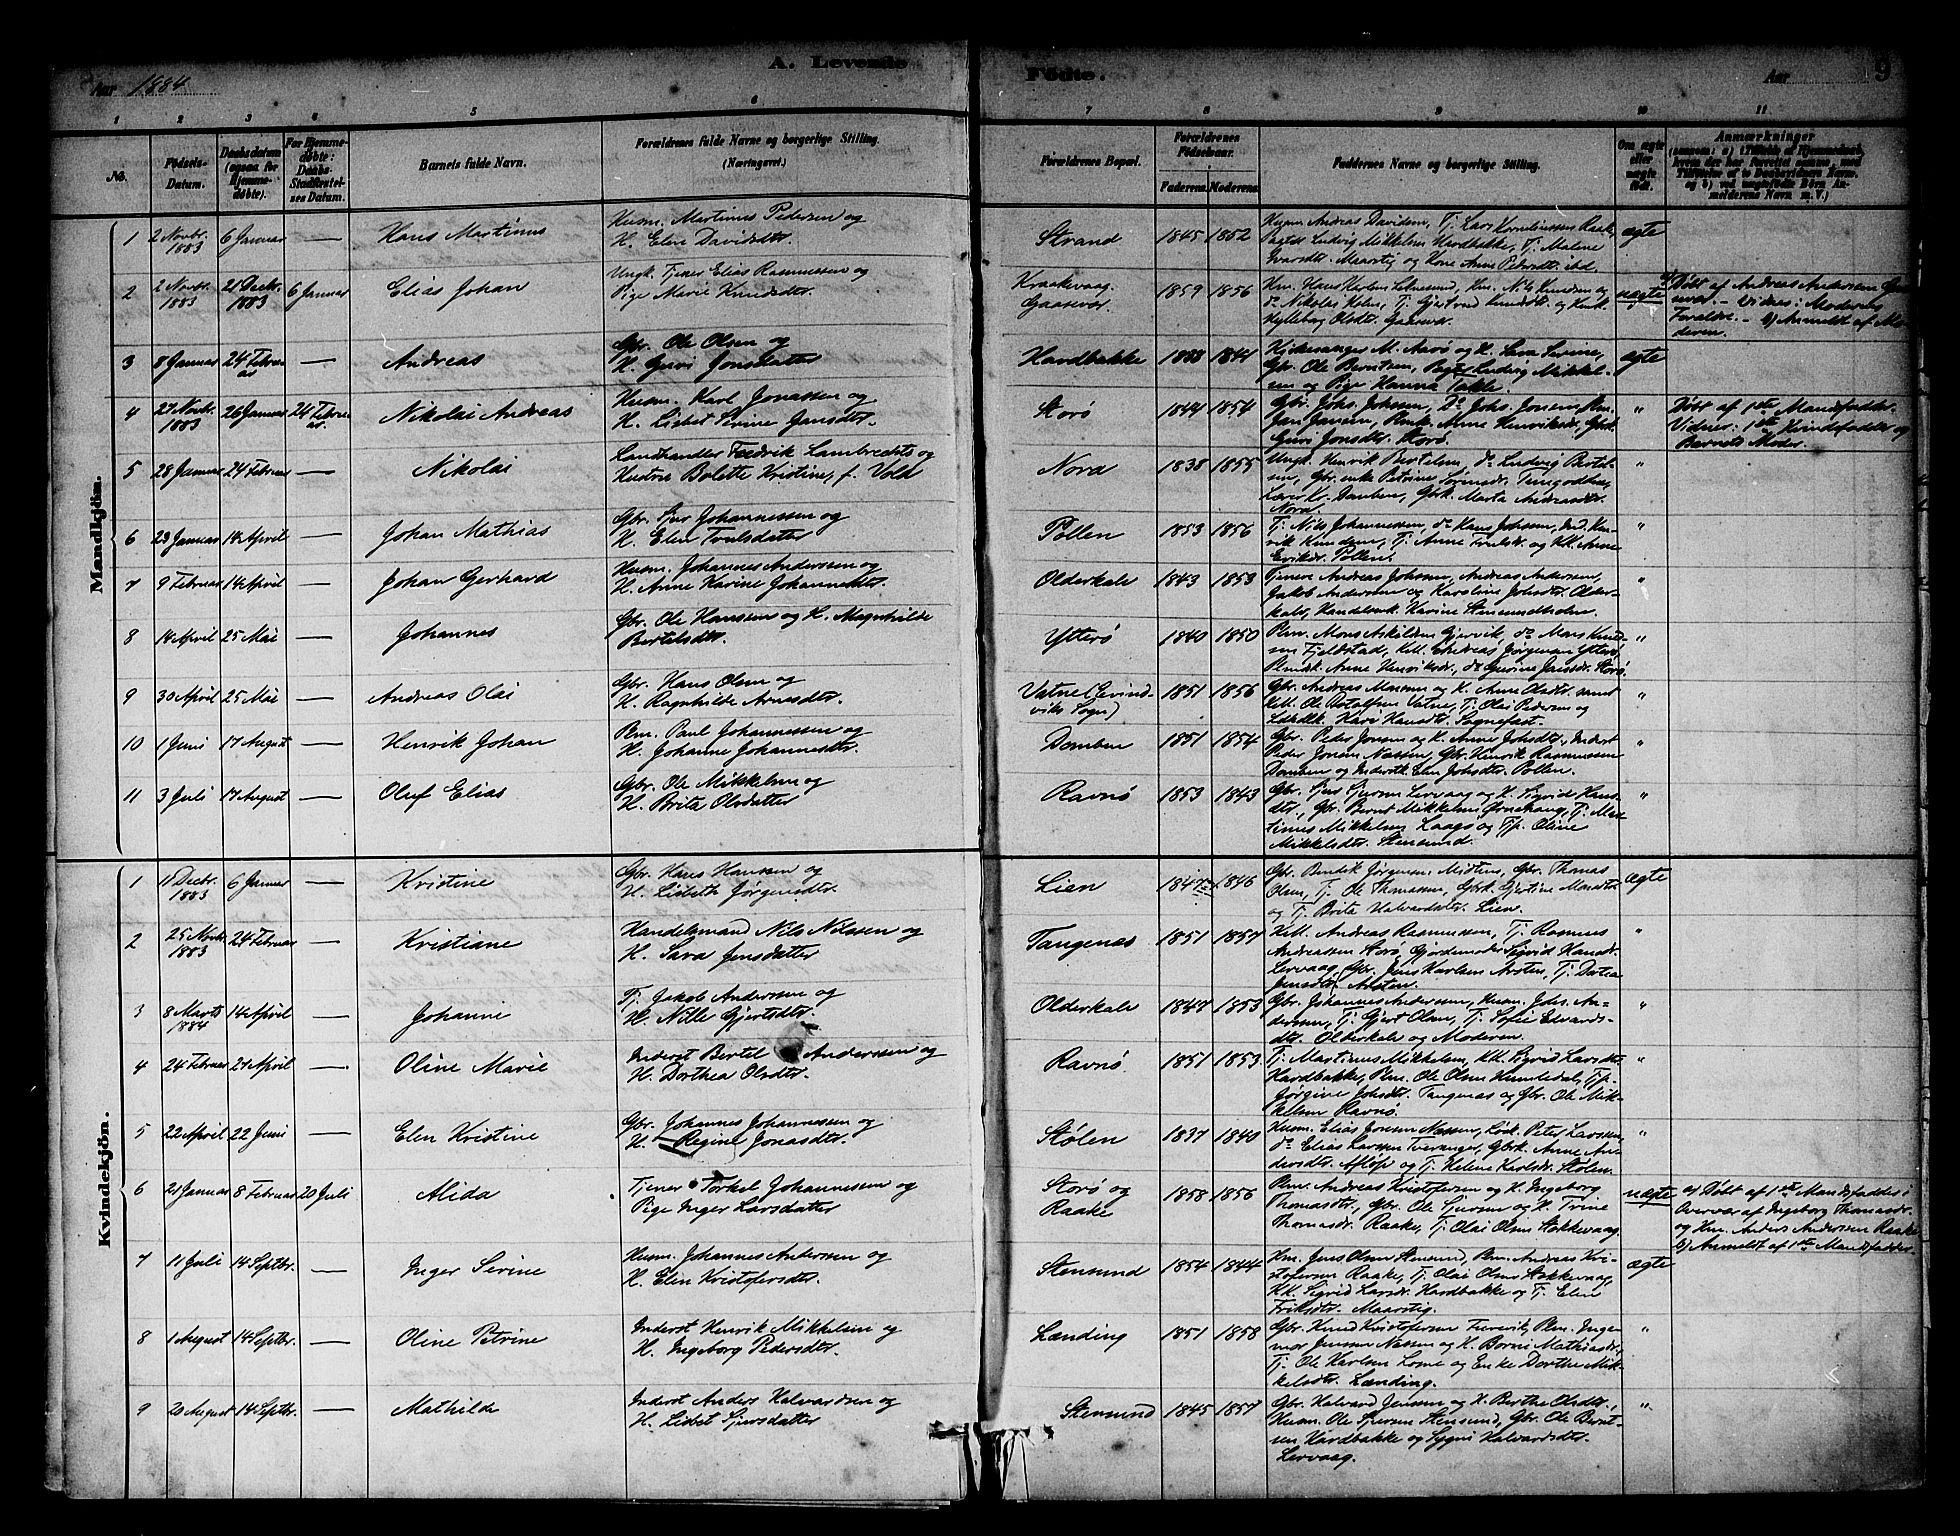 Aar 1884
A. Levende
Födte.
Aar
9
1 2 3 4 5 6 7 8 9 10 11
No.
Födsels-
Datum.
Daabsdatum
(ogsaa for
Hjemme-
döbte).
For Hjemme-
döbte:
Daabs-
Stadfæstel-
ses Datum.
Barnets fulde Navn.
Forældrenes fulde Navne og borgerlige Stilling.
(Næringsvei.)
Forældrenes Bopæl.
Forældrenes
Födselsaar.
Faderens. Moderens.
Faddernes Navne og borgerlige Stilling.
Om ægte
eller
uægte
födt.
Anmærkninger
Mandkjön.
1 2 Novbr. 1883 6 Januar — Hans Martinus
Husm. Martinus Pedersen og
H. Eline Davidsdtr.
Strand 1845 1852
Husm Andreas Davidsen, Tj. Lars Kornelinssen Raake,
Ludvig Mikkelsen Hardbakke, Tj. Malene
Maarstig og Kone Anne Petersdtr. ibd.
ægte
2 2 Novbr. 1883 21 Decbr. 1883 6 Januar Elias Johan
Ungk. Tjener Elias Rasmussen og
Pige Marie Knudsdtr.
Kraakevaag.
Gaasevær.
1859 1856
uægte
Døbt af Andreas Andersen
Vidner: Moderens
Forældre. — b) Anmeldt af Mo-
deren.
3 8 Januar 24 Februar — Andreas
Gbr. Ole Olsen og
H. Guri Jonsdatter
Hardbakke 1844
Kirkesanger M. Aarö og H. Sara Serine,
Gbr. Ole Berntsen, Ludvig Mikkel-
sen og Pige Hanna Takle.
ægte
4 27 Novbr. 1883 26 Januar 24 Februar Nikolai Andreas
Husm. Karl Jonassen og
H. Lisbet Serine Jansdtr.
Storö 1844 1854
Gbr. Johs. Johssen, Do Johs. Jonsen,
Jan Jansen, Anne Henriksdr.
Guri Jonsdtr. Storö.
"
Døbt af 1ste Mandsfadder.
Vidner: 1ste Kvindefadder og
Barnets Moder.
5 28 Januar 24 Februar Nikolai
Landhandler Fredrik Lambrechts og
Hustru Bolette Kristine, f. Vold
Nora 1838 1855
Ungk. Henrik Bertelsen, do Ludvig Bertel-
sen, Gbr. enke Petrine
Marta Andreasdtr.
Nora.
"
6 23 Januar 14 April — Johan Mathias
Gbr. Sjur Johannessen og
H. Elen Troelsdatter
Pollen 1853 1856
Tj. Nils Johannessen, do Hans Johssen, Ind. Hen-
rik Knudsen, Tj. Anne
Eriksdr. Pollen.
"
7 9 Februar 14 April — Johan Gerhard
Husm. Johannes Anderssen og
H. Anne Karine Johannesdtr.
Olderkale 1843 1853
Tjenere Andreas Johssen, Andreas Andersen,
Jakob Andersen og Karoline Johsdtr. Older-
kale, Karine
"
8 14 April 25 Mai — Johannes
Gbr. Ole Hanssen og H. Magnhilde
Bertelsdtr.
Ytterö 1840 1850
Mons Askildsen Gjervik, do Mons Knud-
sen Fjeldstad, Andreas Jørgensen Ytterö,
Anne Henriksdr., do Serine Jansdtr. Storö.
"
9 30 April 25 Mai — Andreas Olai
Gbr. Hans Olsen og
H. Ragnhilde Arnesdtr.
Vatne (Evind-
viks Sogn)
1851 1856
Gbr. Andreas Monsen og K. Anne Olsdtr. samt
Vatne, Tj. Olai Pedersen og
Kari Hansdtr. Sognefast.
"
10 1 Juni 17 August — Henrik Johan
Plm. Paul Johannessen og
H. Johanne Johannesdtr.
Domben 1851 1854
Gbr. Peder Jonsen og K. Anne Johsdtr., Inderst
Peder Jonsen Nässen, Gbr. Henrik Rasmussen
Domben og Elen Johsdtr. Pollen.
"
11 3 Juli 17 August — Oluf Elias
Gbr. Ole Mikkelsen og
H. Brita Olsdatter
Ravnö 1853 1843
Gbr. Sjur Sjursen Lervaag og K. Sigrid Hans-
dtr., Gbr. Bernt Mikkelsen Ørnehaug, Tj. Mar-
tinus Mikkelsen Laagö og Tp. Oline
Mikkelsdtr. Stensund.
"
Kvindekjön.
1 11 Decbr. 1883 6 Januar — Kristine
Gbr. Hans Hansen og
H. Lisbeth Jørgensdtr.
Lien 1846
Gbr. Bendik Jørgensen Midtene, Gbr. Thomas
Olsen, Tj. Ole Thomassen, Gbrk. Gjertine
og Tj. Brita Halvardsdtr. Lien.
ægte
2 25 Novbr. 1883 24 Februar — Kristiane
Handelsmand Nils Nilssen og
H. Sara Jensdatter
Tangenæs 1851 1857
Andreas Rasmussen, Tj. Rasmus
Andreassen Storö, Gjordemoder Sigrid Hansdr.
Lervaag, Gbr. Jens Karlsen Arsten, Tj.
Jensdtr. Arsten.
"
3 8 Marts 1884 14 April Johanne
Tj. Jakob Anderssen og
H. Nille Gjertsdtr.
Olderkale 1847 1853
Gbr. Johannes Andersen, Husm. Johs. An-
dersen, Tj. Gjert Olsen, Tj. Sofie Edvards-
dtr. Olderkale og Moderen.
"
4 24 Februar 21 April — Oline Marie
Inderst Bertel Anderssen og
H. Dorthea Olsdtr.
Ravnö. 1851 1853
Tj. Martinus Mikkelsen, KK. Sigrid Larsdtr.
Hardbakke, Plm. Ole Olsen Humledal, Tp.
Jørgine Johsdtr. Tangenæs og Gbr. Ole Mik-
kelsen Ravnö.
"
5 22 April 22 Juni — Elen Kristine
Gbr. Johannes Johannessen og
H. Regine Jonasdtr.
Stølen 1837 1840
Husm. Elias Jonsen Nässen, Peter Larssen,
do Elias Larssen Tveranger, Gbrk. Anne An-
dersdtr. Afløp og Tj. Helene Karlsdr. Stølen.
"
6 21 Januar 8 Februar 20 Juli Alida
Tjener Torkel Johannessen og
Pige Inger Larsdatter
Storö og
Raake
1858 1856
Plm. Andreas Kristofersen og K. Ingeborg
Thomasdtr., Gbr. Ole Sjursen og K. Trine
Thomasdr. Raake, Tj. Olai Olsen Stokkevaag.
uægte
a) Døbt af 1ste Mandsfadder i
Overvær af Ingeborg Thomasdr.
og Husm. Anders Andersen Raake
b) Anmeldt af 1ste Mandsfadder.
7 11 Juli 14 Septbr. — Inger Serine
Husm. Johannes Andersen og
H. Elen Kristofersdtr.
Stensund 1854 1844
Husm. Jens Olsen Stensund, Plm. Andreas Kri-
stofersen Raake, Tj. Olai Olsen Stokkevaag,
KK. Sigrid Larsdr. Hardbakke og Tj. Eline
Eriksdtr. Maarstig.
ægte
8 1 August 14 Septbr. — Oline Petrine
Inderst Henrik Mikkelsen og
H. Ingeborg Pedersdtr.
Lænding 1851 1858
Gbr. Knud Kristofersen Plm. Inge-
mor Jensen Nässen og K. Mathiasdr.,
Tj. Ole Karlsen og Enke Dorthe Mik-
kelsdtr. Lænding.
"
9 20 August 14 Septbr. — Mathilde
Inderst Anders Halvardsen og
H. Lisbet Sjursdatter
Stensund 1845 1857
Gbr. Halvard Jensen og K. Berthe Olsdtr.,
Husm. Ole Sjursen Stensund, Gbr. Ole Bernt-
sen Hardbakke og Sygni Halvardsdtr.
Lervaag.
"